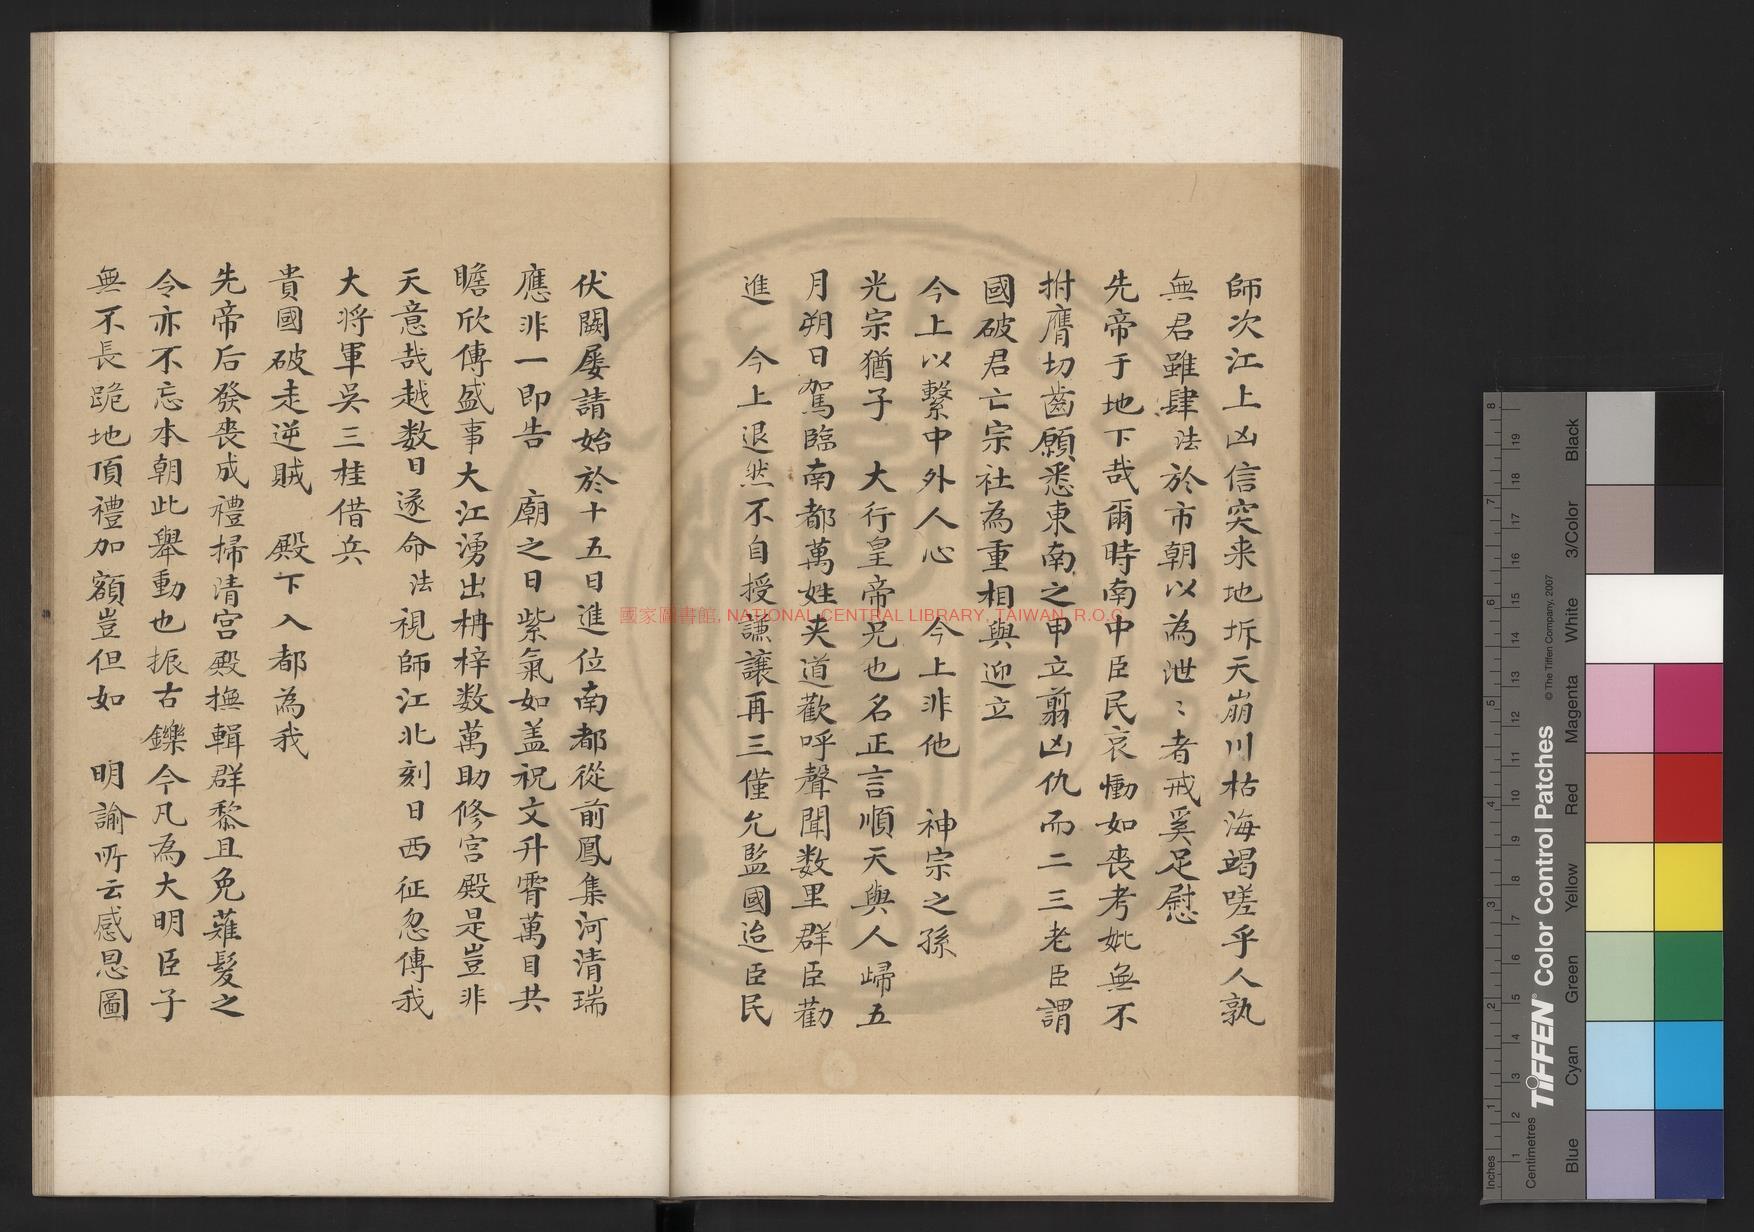 師次江上凶信突来地坼天崩川枯海竭嗟乎人孰
無君雖肆法於市朝以為泄〻者戒奚足慰
先帝于地下哉爾時南中臣民哀慟如喪考妣無不
拊膺切齒願悉東南之甲立翦凶仇而二三老臣謂
國破君亡宗社為重相與迎立
今上以繫中外人心 今上非他 神宗之孫
光宗猶子 大行皇帝兄也名正言順天與人歸五
月朔日駕臨南都萬姓夾道歡呼聲聞数里群臣勸
進 今上退然不自授謙讓再三僅允監國迨臣民
伏闕屡請始於十五日進位南都從前鳳集河清瑞
應非一即告 廟之日紫氣如盖祝文升霄萬目共
瞻欣傳盛事大江湧出柟梓数萬助修宫殿是豈非
天意哉越数日遂命法視師江北刻日西征忽傳我
大将軍吳三桂借兵
貴國破走逆賊 殿下入都為我
先帝后發喪成禮掃清宫殿撫輯群黎且免薙髮之
令亦不忘本朝此舉動也振古鑠今凡為大明臣子
無不長跪地頂禮加額豈但如 明諭所云感恩圖
國家圖書館, NATIONAL CENTRAL LIBRARY, TAIWAN, R.O.C
Inches
Centimetres
TIFFEN® Color Control Patches
© The Tiffen Company, 2007
Blue
Cyan
Green
Yellow
Red
Magenta
White
3/Color
Black